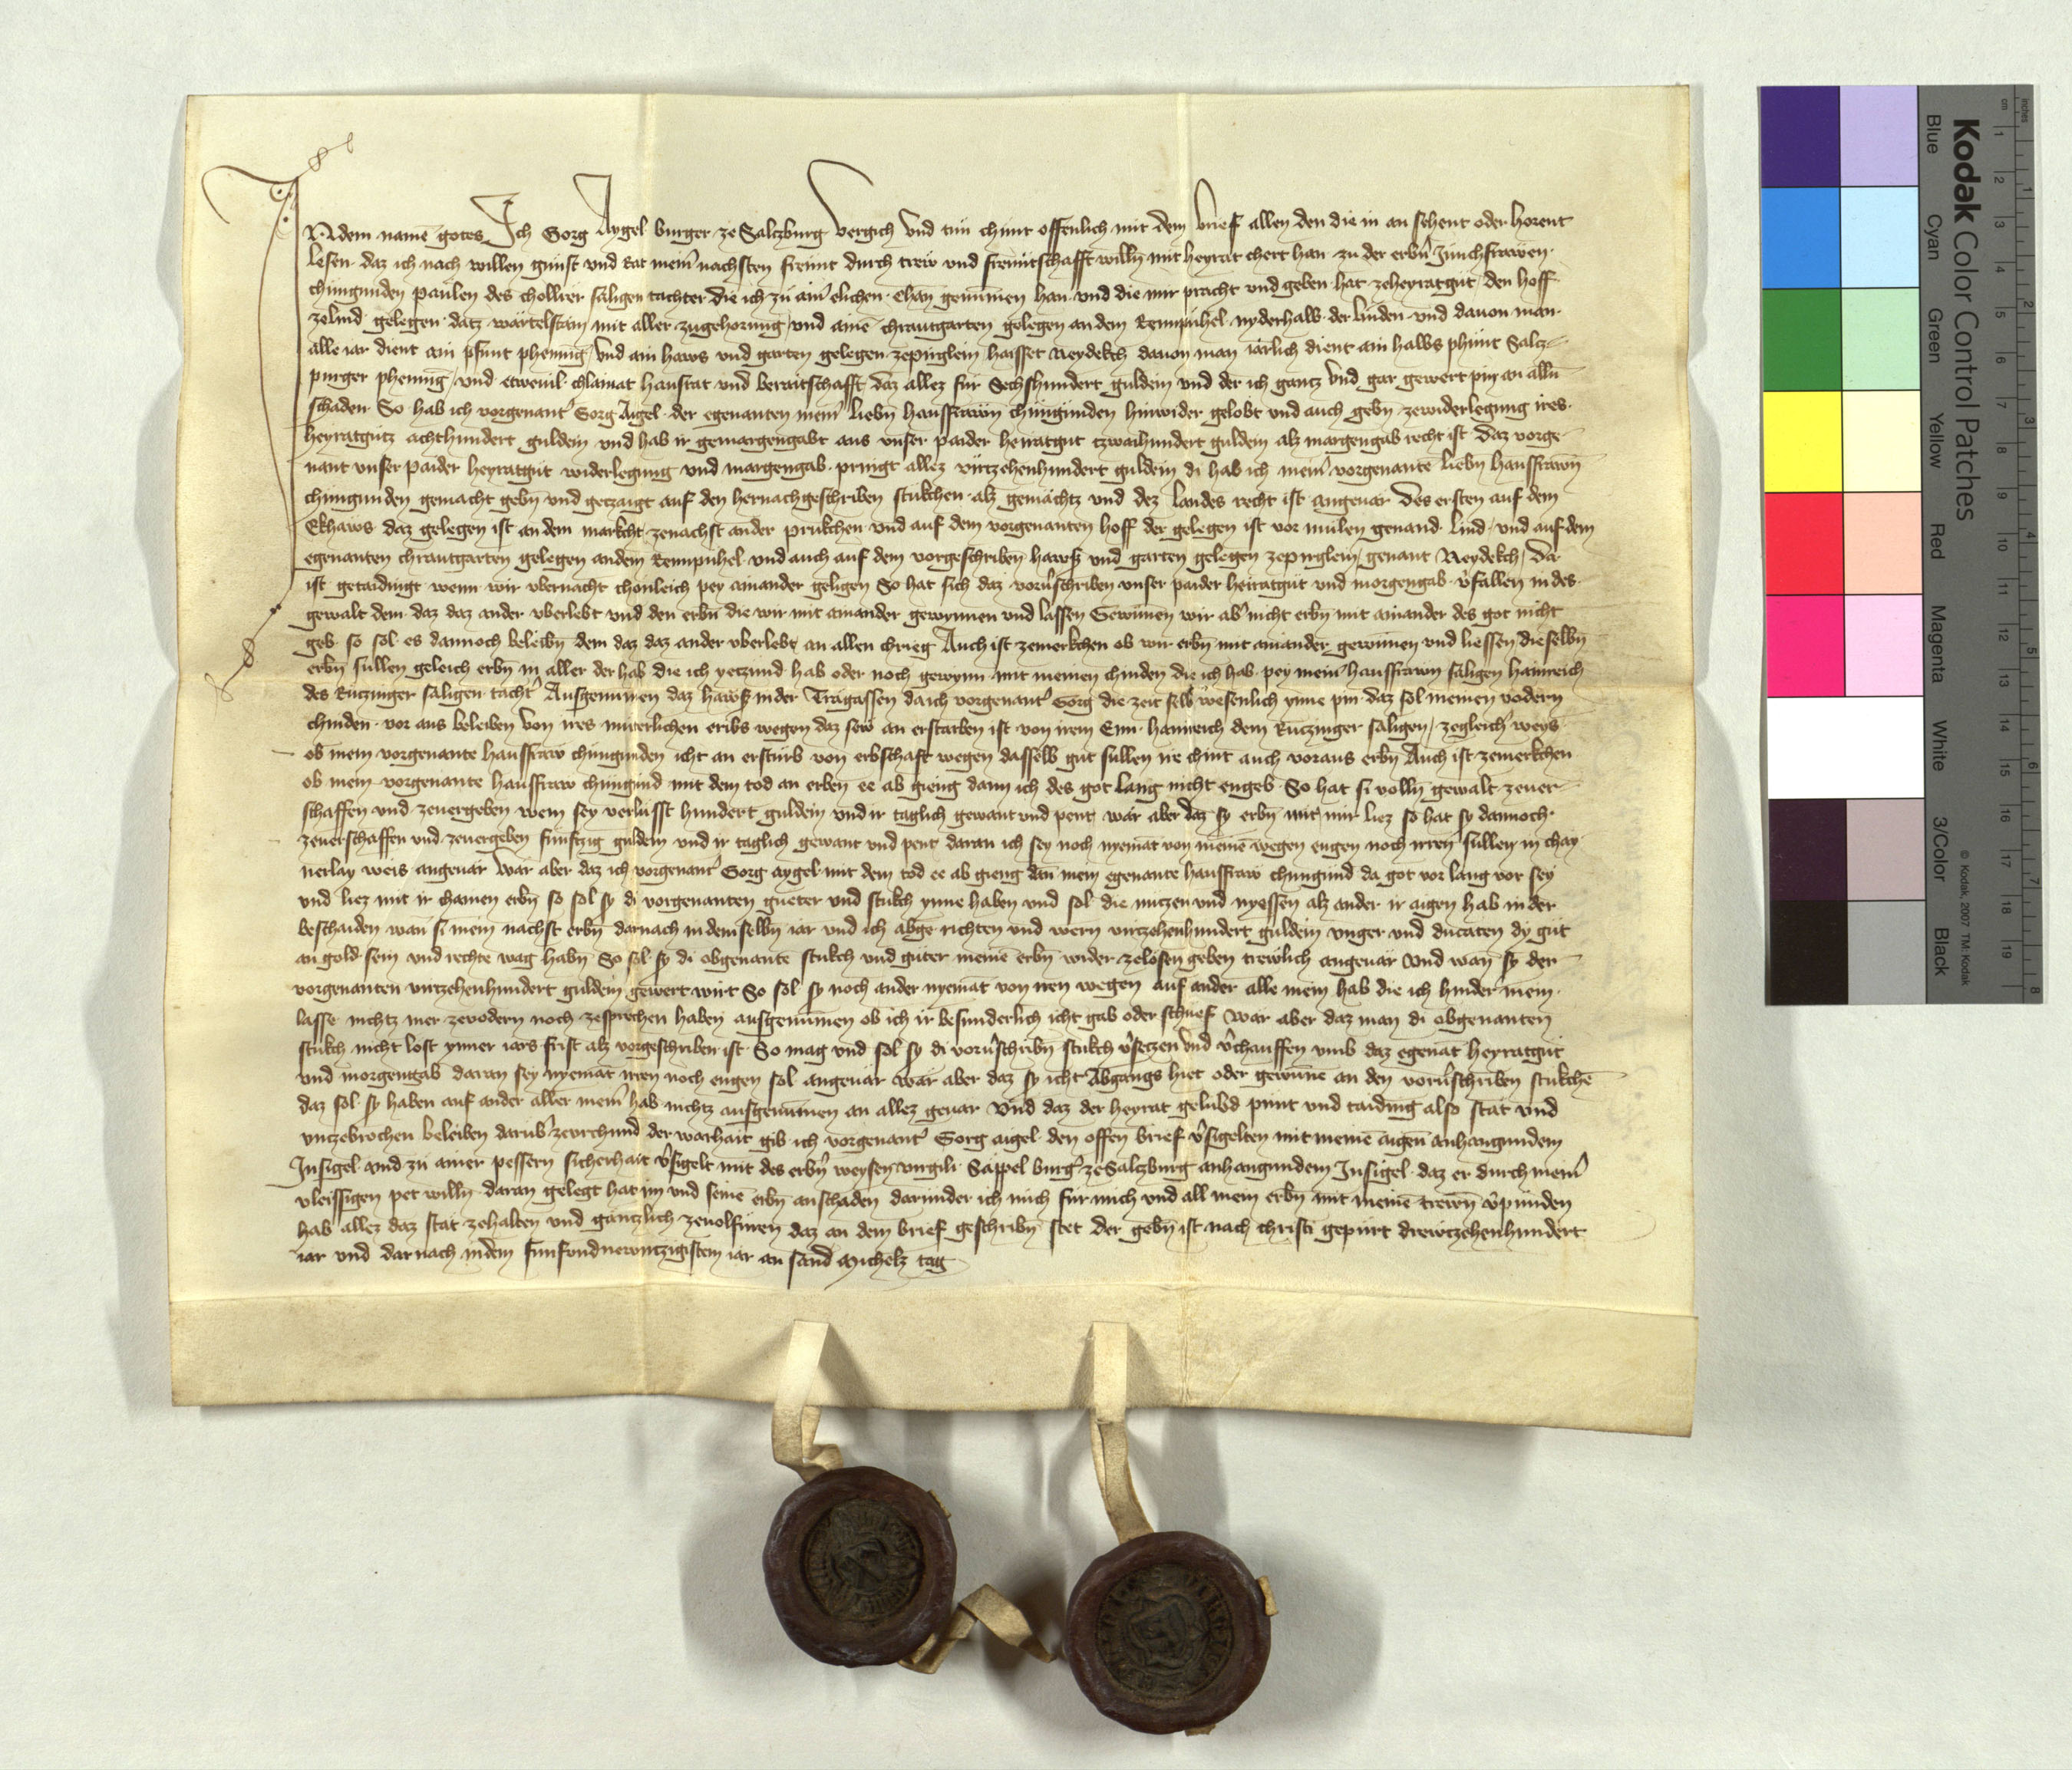 IN dem namē gotes Ich Gorg Aygel burger ze Salczburg vergich vnd tůn chunt offenlich mit dem brief allen den die in an sehent oder horent
lesen daz ich nach willen gunst vnd Rat mein̄ nachsten freunt durch trew vnd freuntschafft willn̄ mit heyrat chert han zu der erbn̄ Junchfrawen
chungunden paulen des chollrer säligen tachter die ich zu aim̄ elichen chan genummen han vnd die mir pracht vnd geben hat ze heyratgut den hoff
zelind gelegen datz wartelstain mit aller zugehorung vnd ainē chrautgarten gelegen an dem Rennpuhel nyderhalb der linden vnd dauon man
alle iar dient ain pfunt phenning vnd ain haws vnd garten gelegen zepirglein haisset Neydekch dauon man iärlich dient ain halbs phunt Salcz
purger phennig vnd etweuil chlainat hausrat vnd beraitschafft daz allez für Sechshundert guldein vnd der ich gantz vnd gar gewert pin an alln̄
schaden So hab ich vorgenant' Gorg Aigel der egenanten mein̄ liebn̄ hausfrawn chungunden hinwider gelobt vnd auch gebn̄ zewiderlegung ires
heyratgutz achthundert guldein vnd hab ir gemargengabt aus vnser paider heiratgut tzwaihundert guldein alz margengab recht ist daz vorge
nant vnser paider heyratgut widerlegung vnd margengab pringt allez virtzehenhundert guldein di hab ich mein̄ vorgenante liebn̄ hausfrawn̄
chungunden gemacht gebn̄ vnd getzaigt auf den hernachgeschriben stukchen alz gemächtz vnd dez landes recht ist angeuar des ersten auf dem
Ekhaws daz gelegen ist an dem markcht zenachst ander prukchen vnd auf dem vorgenanten hoff der gelegen ist vor mulen genand lind vnd auf dem
egenanten chrautgarten gelegen andem Rennpuhel vnd auch auf dem vorgeschriben haws vnd garten gelegen zepirglein genant Neydekch da
ist getaidingt wenn wir vbernacht chonleich pey ainander geligen So hat sich daz vorũschriben vnser paider heiratgut vnd morgengab v̄fallen in des
gewalt dem daz daz ander vberlebt vnd den erbn̄ die wir mit ainander gewynnen vnd lassen Gewunnen wir ab' nicht erbn̄ mit ainander des got nicht
geb so sol es dannoch beleibn̄ dem daz daz ander vberlebt an allen chrieg Auch ist zemerkchen ob wir erbn̄ mit ainander gewunnen vnd liessen dieselbn̄
erbn̄ sullen geleich erbn̄ in aller der hab die ich yetzund hab oder noch gewynn mit meinen chinden die ich hab pey mein̄ hausfrawn säligen hainreich
des Rutzinger säligen tacht' Ausgenummen daz haws in der Tragassen da ich vorgenant' Gorg die zeit selb wesenlich ynne pin daz sol meinen vodern
chinden vor aus beleiben von ires muterlichen eribs wegen daz sew an erstarben ist von irem Enn hainreich dem Rutzinger säligen zegleich' weys
ob mein vorgenante hausfraw chungunden icht an ersturb von erbschaft wegen dasselb gut sullen ire chint auch voraus erbn̄ Auch ist zemerkchen
ob mein vorgenante hausfraw chungund mit dem tod an erben ee ab gieng dann ich des got lang nicht engeb So hat si volln̄ gewalt zeuer
schaffen vnd zeuergeben wem sey verlusst hundert guldein vnd ir taglich gewant vnd pent wär aber daz sy erbn̄ mit mir liez so hat sy dannoch
zeuerschaffen vnd zeuergeben funftzig guldein vnd ir taglich gewant vnd pent daran ich sey noch nyemāt von meinē wegen engen noch irren sullen in chay
nerlay weis angeuär wär aber daz ich vorgenant' Gorg aygel mit dem tod ee ab gieng dan̄ mein egenante hausfraw chungund da got vor lang vor sey
vnd liez mit ir chainen erbn̄ so sol sy di vorgenanten gueter vnd stukch ynne haben vnd sol die nutzen vnd nyessen alz ander ir aigen hab in der
beschaiden wan̄ si mein nachst erbn̄ darnach in demselbn̄ iar vnd ich abge richten vnd wern virtzehenhundert guldein vnger vnd ducaten dy gut
an gold sein vnd rechte wag habn̄ So sol sy di obgenante stukch vnd güter meinē erbn̄ wider zelosen geben trewlich angeuär vnd wan̄ sy der
vorgenanten virtzehenhundert guldein gewert wirt So sol sy noch ander nyemāt von iren wegen auf ander alle mein hab die ich hinder mein
lasse nichtz mer zevodern noch zesprechen haben ausgenummen ob ich ir besunderlich icht gäb oder schüef wär aber daz man di obgenanten
stukch nicht lost ynner iars frist alz vorgeschriben ist So mag vnd sol sy di vorũschribn̄ stukch v̄setzen vnd v̄chauffen vmb daz egenāt heyratgut
vnd morgengab daran sey nyemāt irren noch engen sol angeuär wär aber daz sy icht Abgangs hiet oder gewunne an den vorũschriben stukchē
daz sol sy haben auf ander aller mein̄ hab nichtz ausgenummen an allez geuär Vnd daz der heyrat gelubd punt vnd taiding also stät vnd
vntzebrochen beleiben darub' zeurchund der warhait gib ich vorgenant' Gorg aigel den offen brief v̄sigelten mit meinē aigen anhangundem
Insigel vnd zu ainer pessern sicherhait v̄sigelt mit des erbn̄ weysen virgili Säppel burg' ze Salczburg anhangundem Insigel daz er durch mein̄
vleissigen pet willn̄ daran gelegt hat im vnd seinē erbn̄ anschaden darunder ich mich für mich vnd all mein erbn̄ mit meinē trewn̄ v̄punden
hab allez daz stät zehalten vnd gäntzlich zeuolfüren daz an dem brief geschribn̄ stet der gebn̄ ist nach christi gepurt drewtzehenhundert
iar vnd dar nach in dem funfvndnewntzigistem iar an sand Michelz tag
Kodak Color Control Patches
Blue Cyan Green Yellow Red Magenta White 3/Color Black
© Kodak, 2007 TM: Kodak
cm 1 2 3 4 5 6 7 8 9 10 11 12 13 14 15 16 17 18 19
inches 1 2 3 4 5 6 7 8